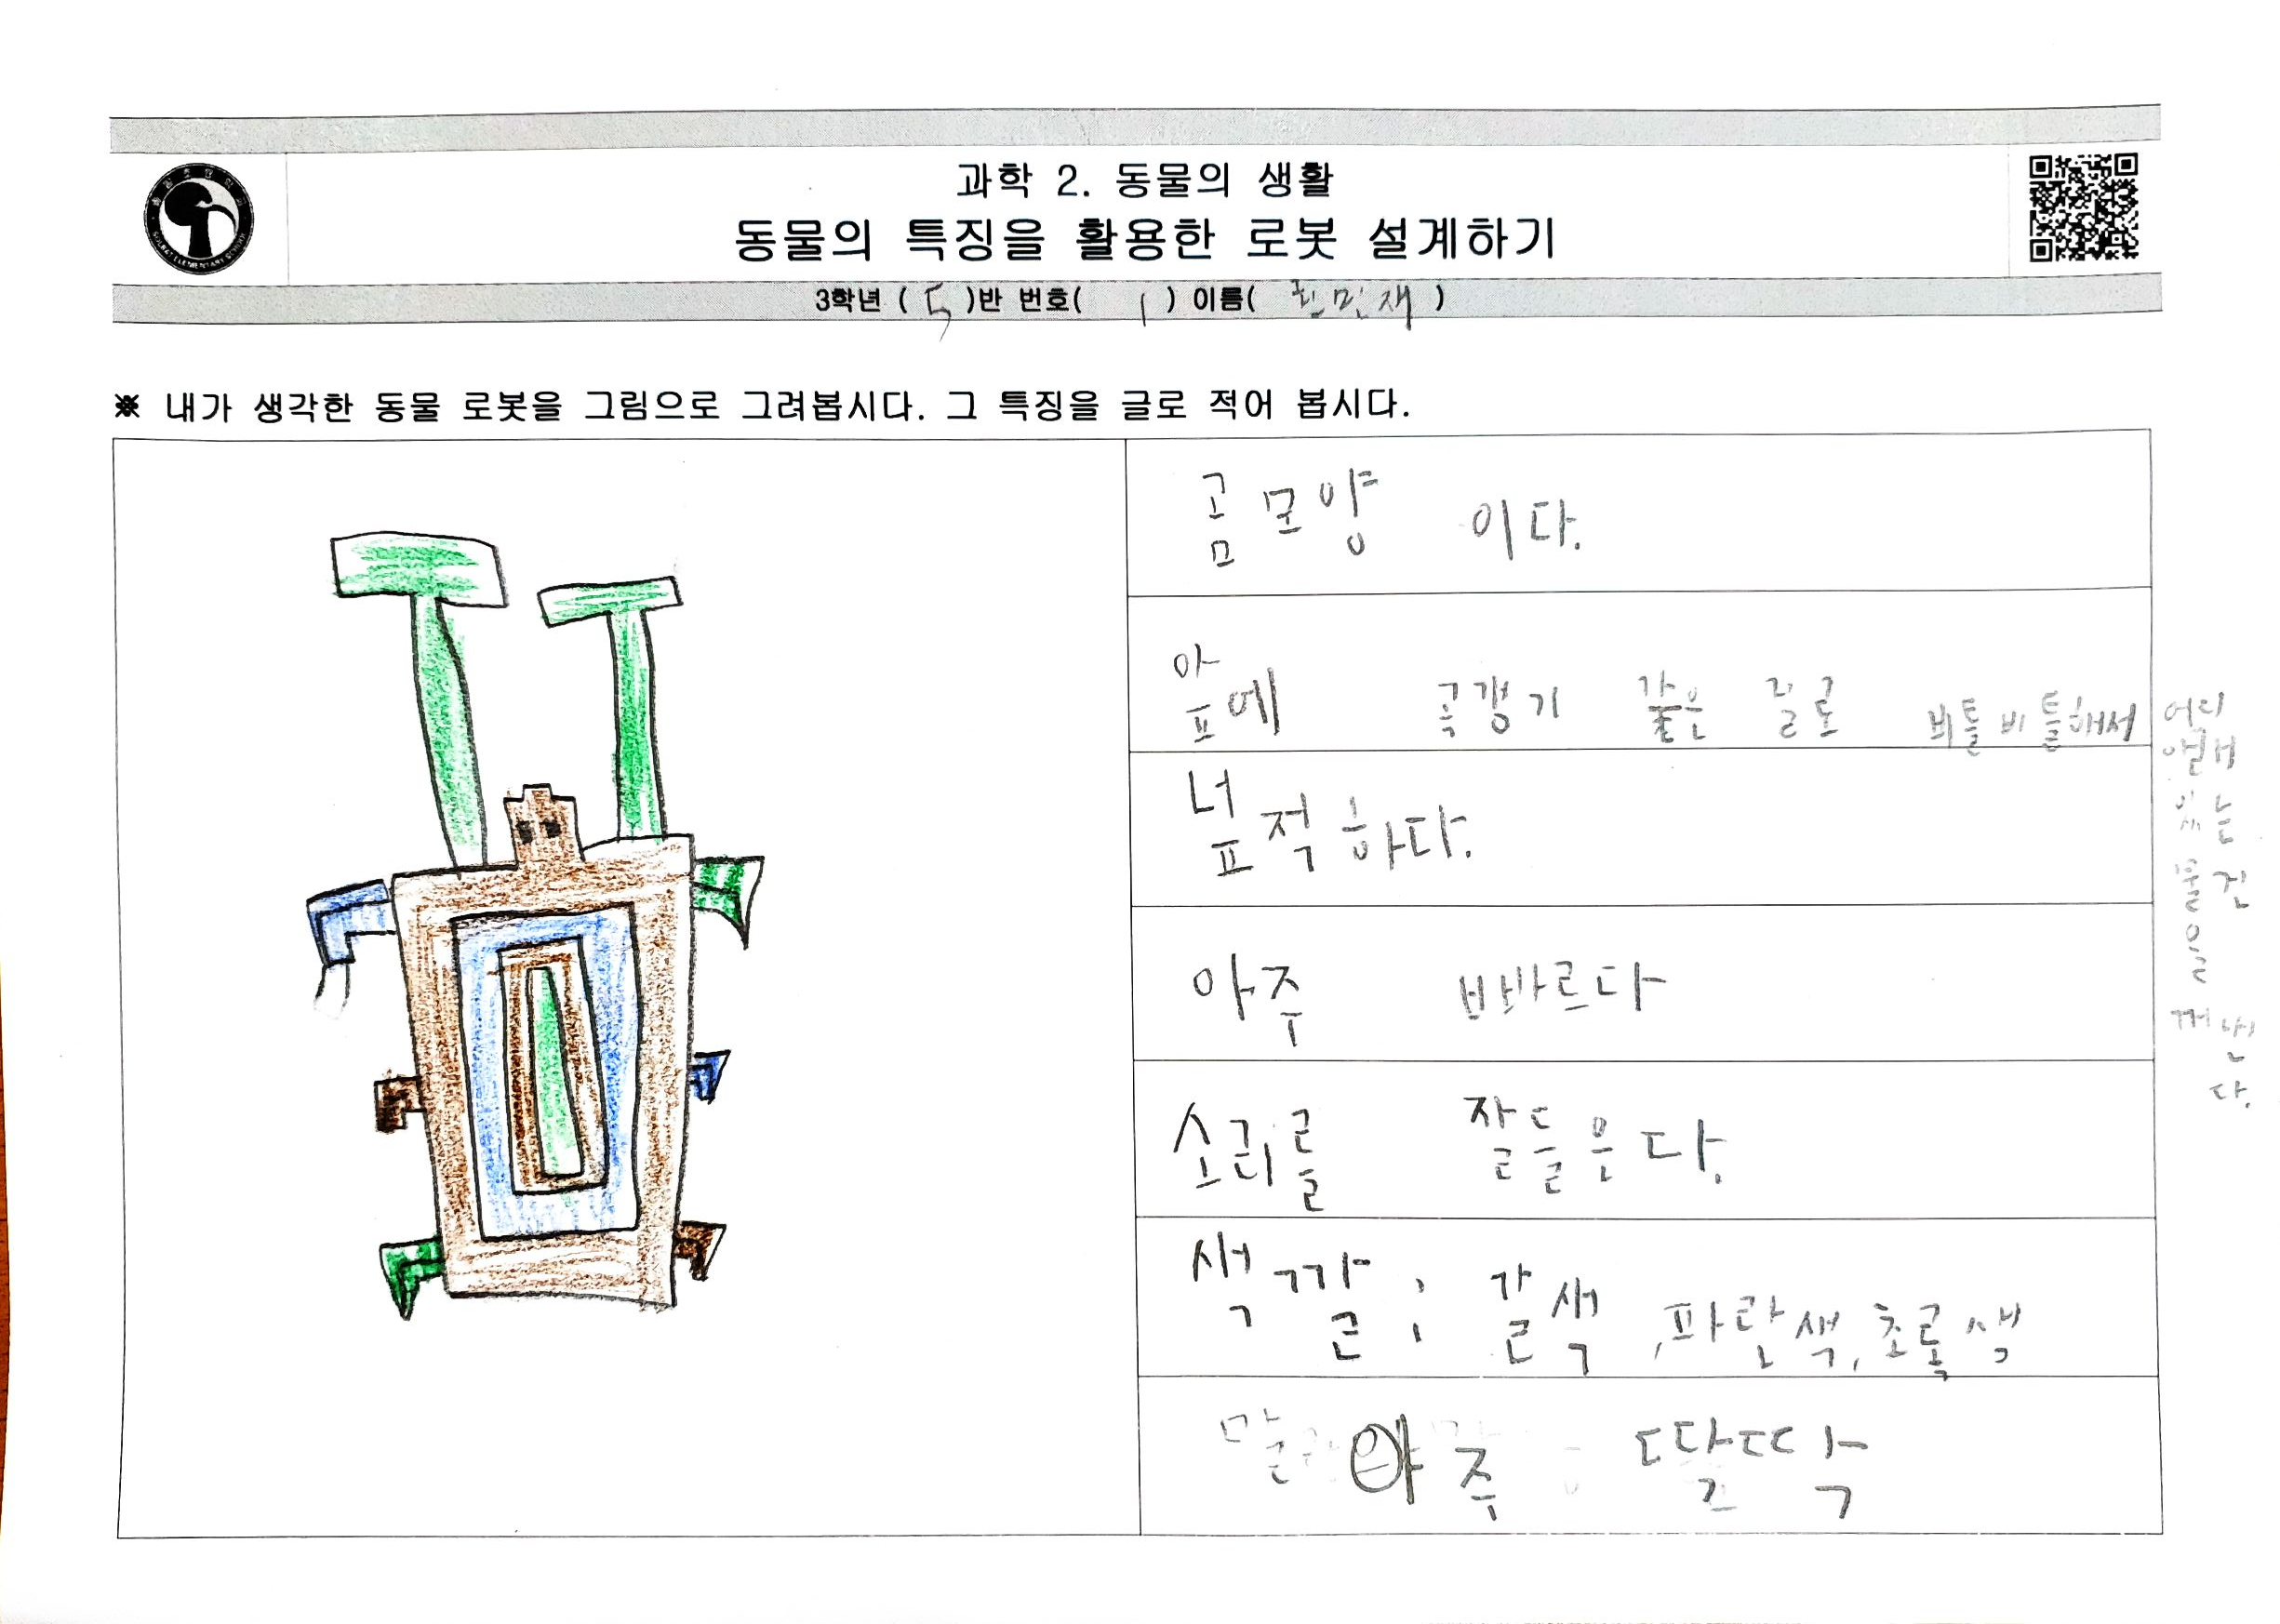 과학 2. 동물의 생활
동물의 특징을 활용한 로봇 설계하기
3학년 ( 5 )반 번호( 1 ) 이름( 민재 )
※ 내가 생각한 동물 로봇을 그림으로 그려봅시다. 그 특징을 글로 적어 봅시다.
곰모양 이다.
앞에 곡갱기 같은 길로 삐틀비틀해서
어디
있는
물건
을
꺼낸
다.
넙적하다.
아주 빠르다
소리를 잘들은다.
색깔: 갈색, 파란색, 초록생
아주